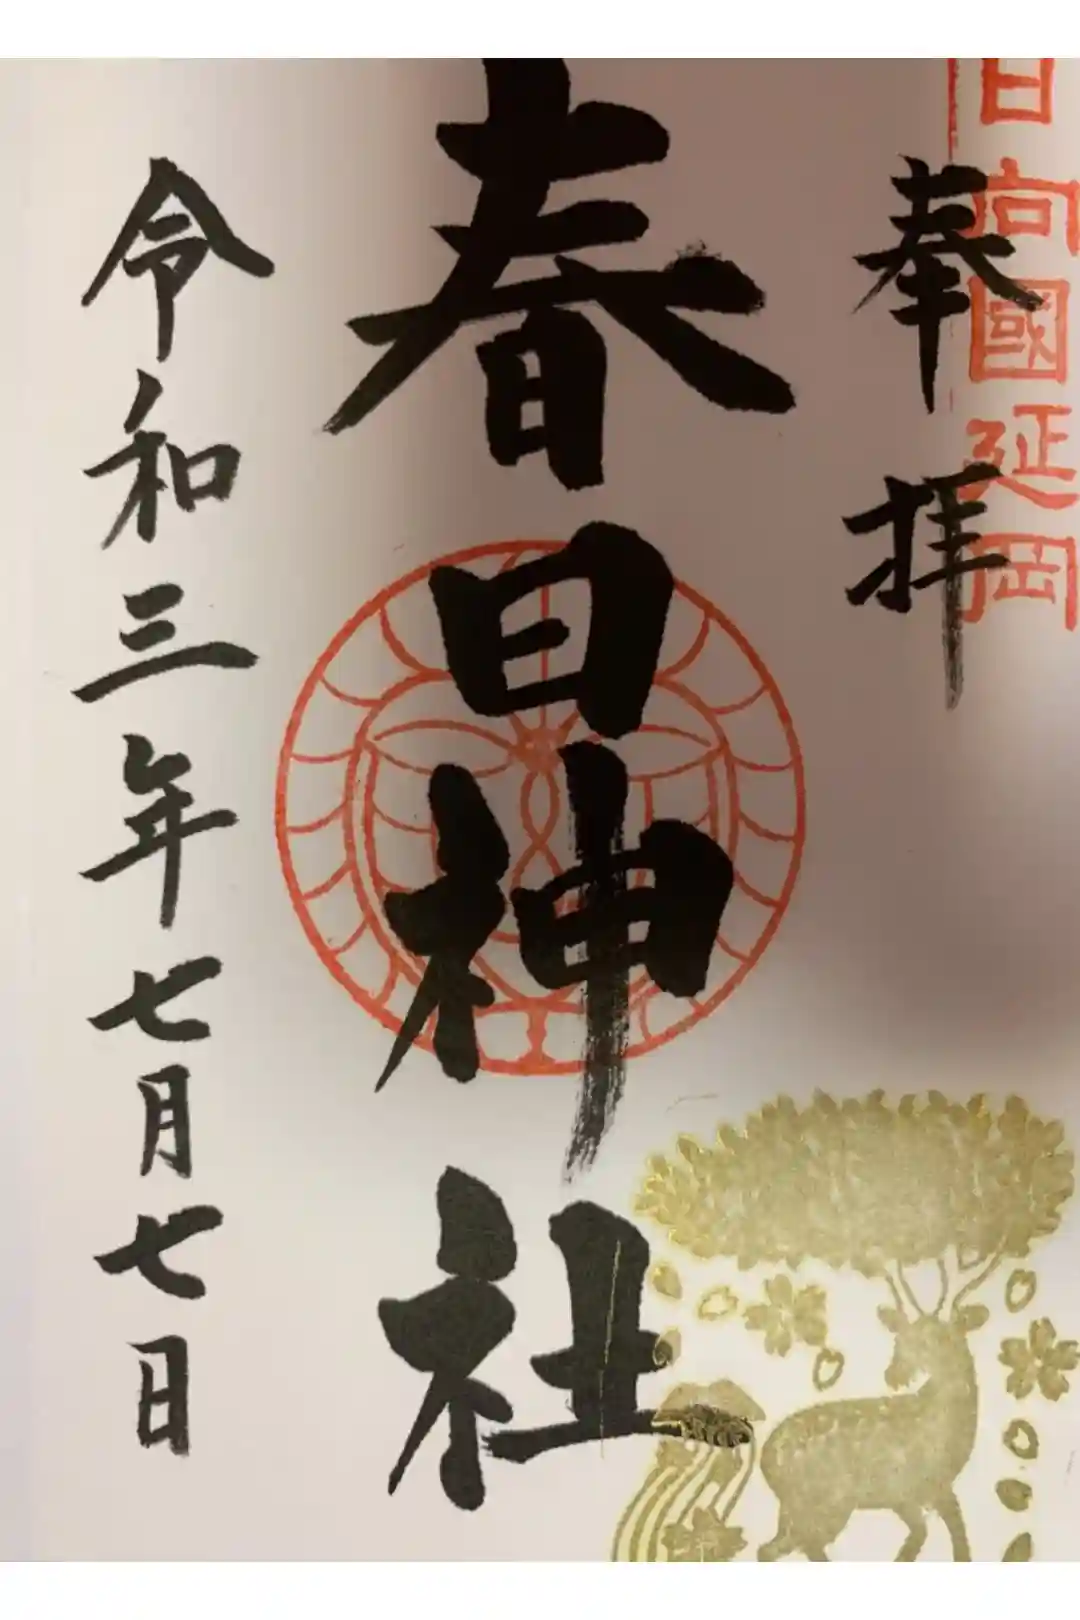 奉拝
日向國延岡
春日神社
令和三年七月七日